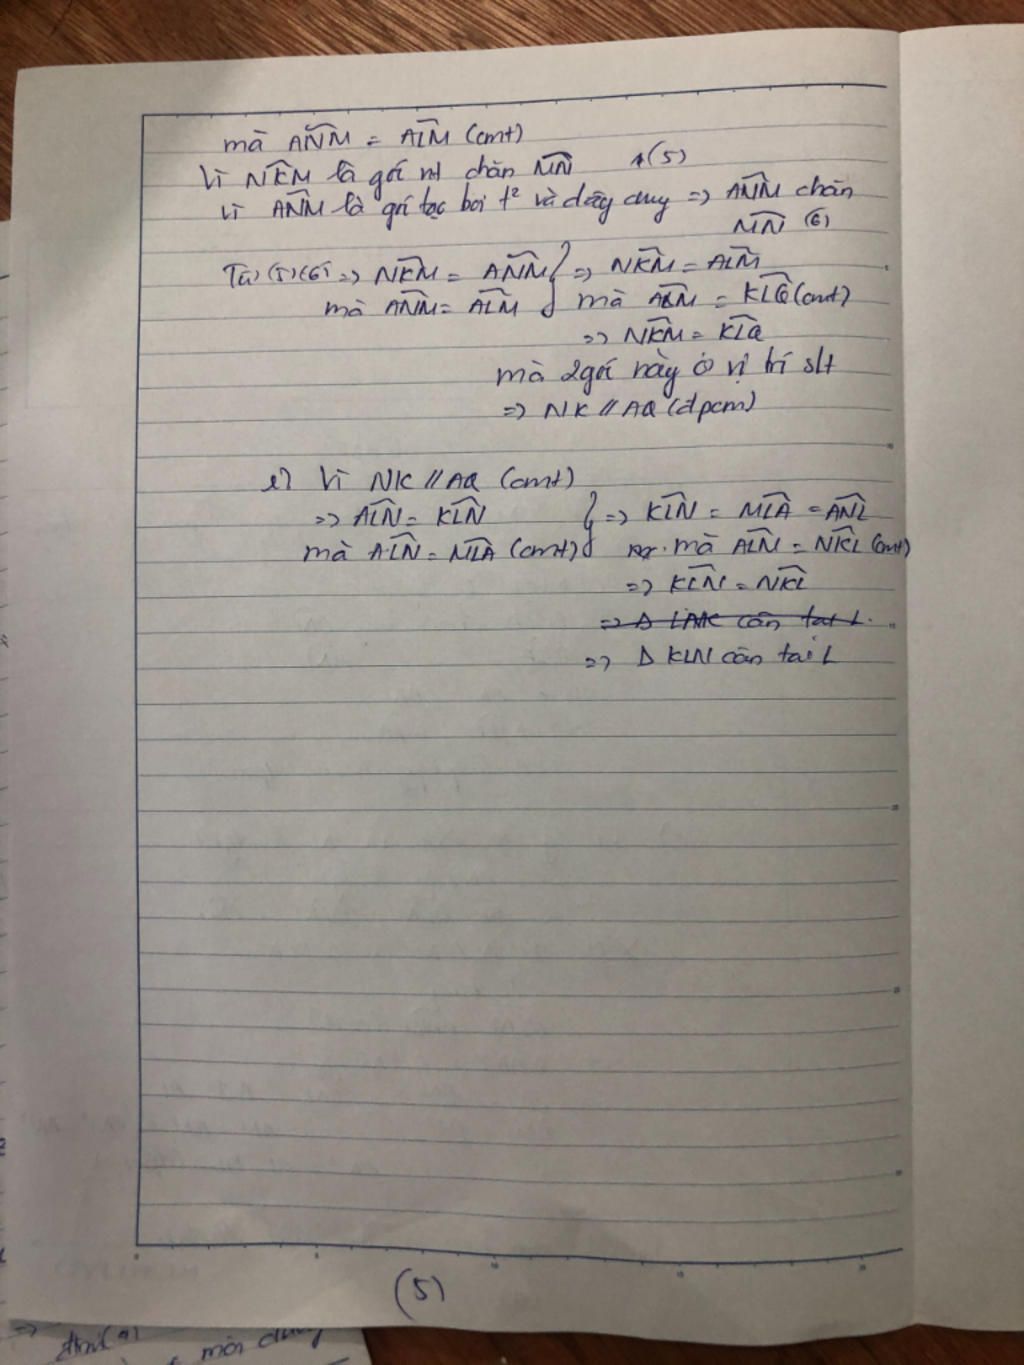 mà ANM = ALM (cmt)
Vì NKM là góc nt chắn MN (5)
vì ANM là góc tạo bởi t² và dây cung => ANM chắn
MN (6)
Từ (5)(6) => NKM = ANM } => NKM = ALM
mà ANM = ALM } mà ALM = KLQ (cmt)
=> NKM = KLQ
mà 2 góc này ở vị trí slt
=> NK // AQ (đpcm)
e) Vì NK // AQ (cmt)
=> ALN = KLN } => KLN = MLA = ANL
mà ALN = MLA (cmt) } mà ALN = NKL (cmt)
=> KLN = NKL
=> Δ LMK cân tại L.
=> Δ KLN cân tại L
(5)
=>
(a)
môi